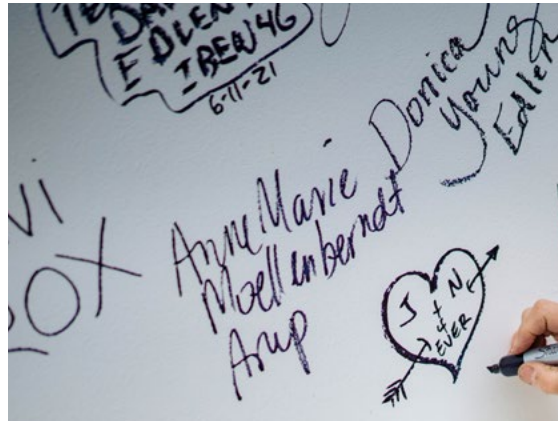 EDLEN
IBEW 46
6-11-21
Donica
Young
Edlen
Anne Marie
Moellenberndt
Arup
VI
OX
J + N
4
EVER